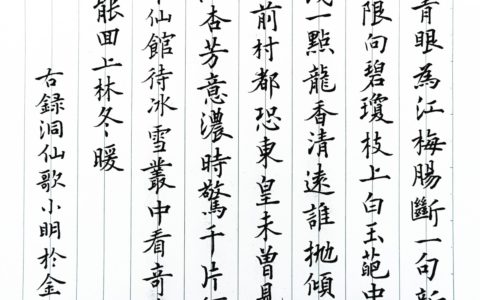 青眼為江梅腸斷一句新
限向碧瓊枝上白玉葩中
一點龍香清遠誰拋傾
前村都恐東皇未曾見
杏芳意濃時驚千片
仙館待冰雪叢中看奇
能回上林冬暖
右録洞仙歌小明於金